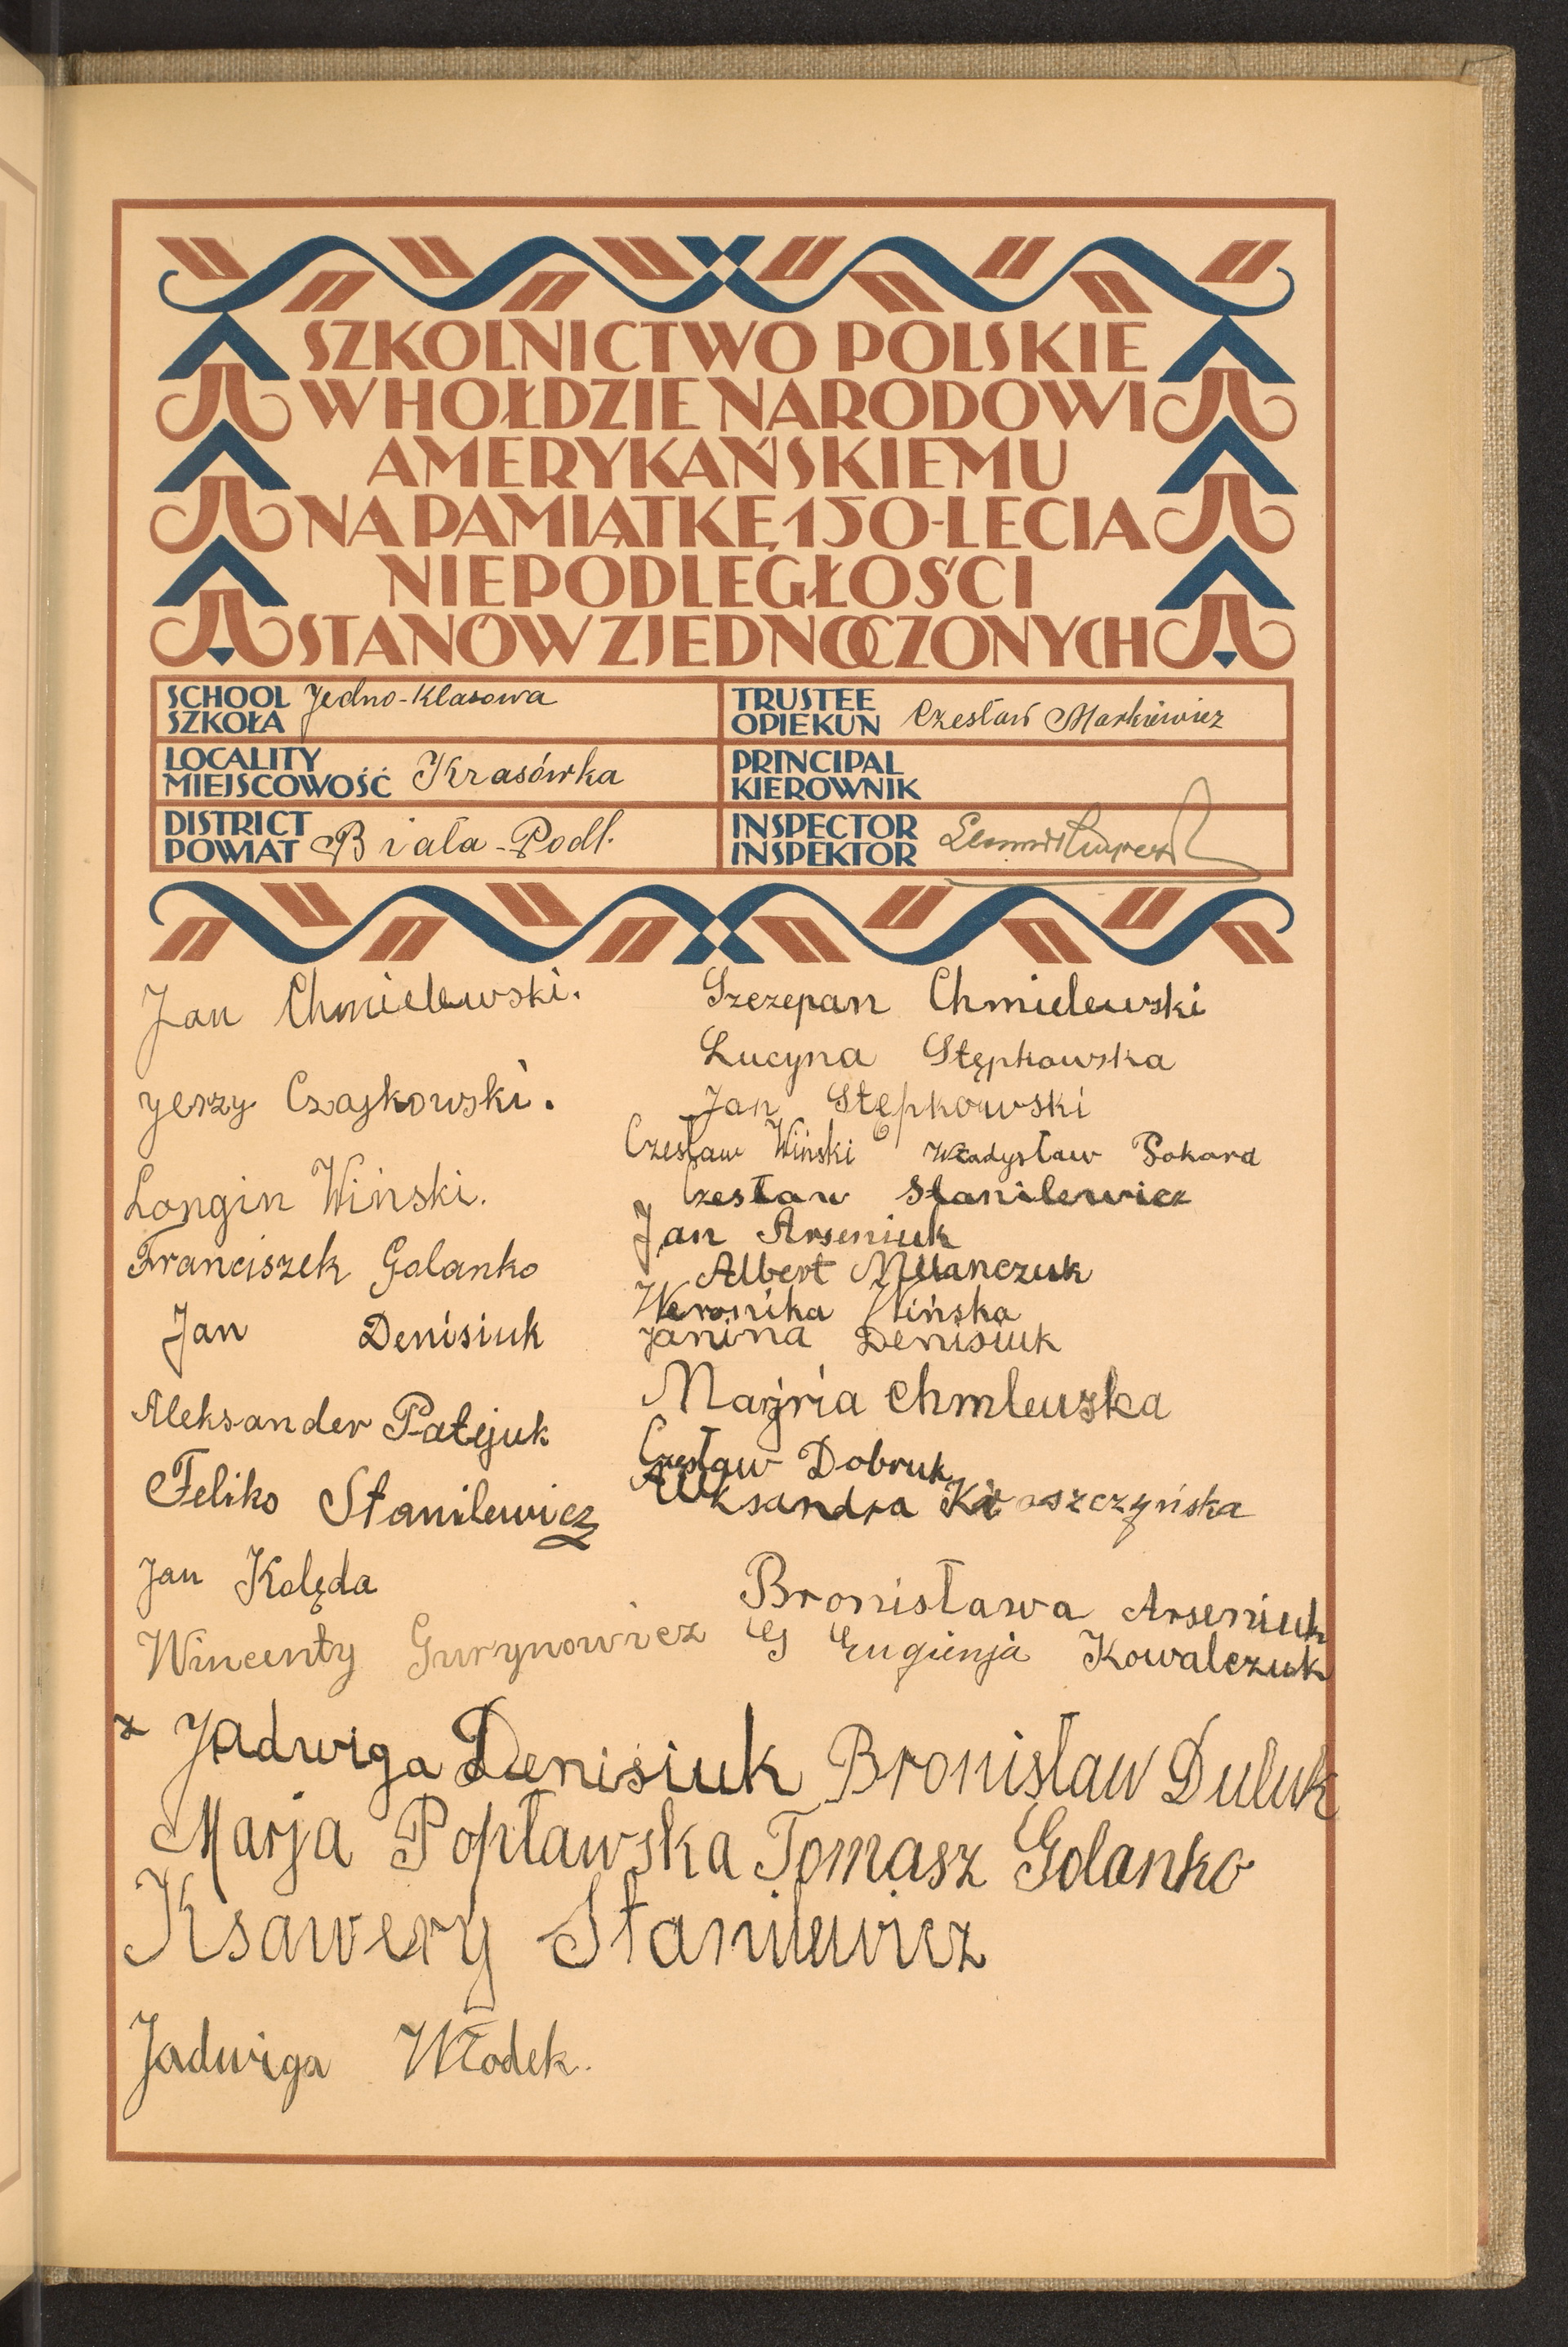 SZKOLNICTWO POLSKIE
W HOŁDZIE NARODOWI
AMERYKAŃSKIEMU
NA PAMIĄTKĘ 150-LECIA
NIEPODLEGŁOŚCI
STANÓW ZJEDNOCZONYCH
SCHOOL
SZKOŁA
Jedno-Klasowa
TRUSTEE
OPIEKUN
Czesław Markiewicz
LOCALITY
MIEJSCOWOŚĆ
Krasówka
PRINCIPAL
KIEROWNIK
DISTRICT
POWIAT
Biała-Podl.
INSPECTOR
INSPEKTOR
Jan Chmielewski.
Jerzy Czajkowski.
Longin Wiński.
Franciszek Golanko
Jan Denisiuk
Aleksander Patejuk
Feliks Stanilewicz
Jan Kolęda
Wincenty Gurynowicz
Szczepan Chmielewski
Lucyna Stępkowska
Jan Stępkowski
Czesław Wiński Władysław Sokora
Czesław Stanilewicz
Jan Arseniuk
Albert
Weronika Wińska
Janina Denisiuk
Marjria Chmleuska
Czesław Dobruk
Aleksandra
Bronisława Arseniuk
Eugienja Kowalczuk
x Jadwiga Denisiuk Bronisław Duluk
Marja Popławska Tomasz Golanko
Ksawery Stanilewicz
Jadwiga Włodek.